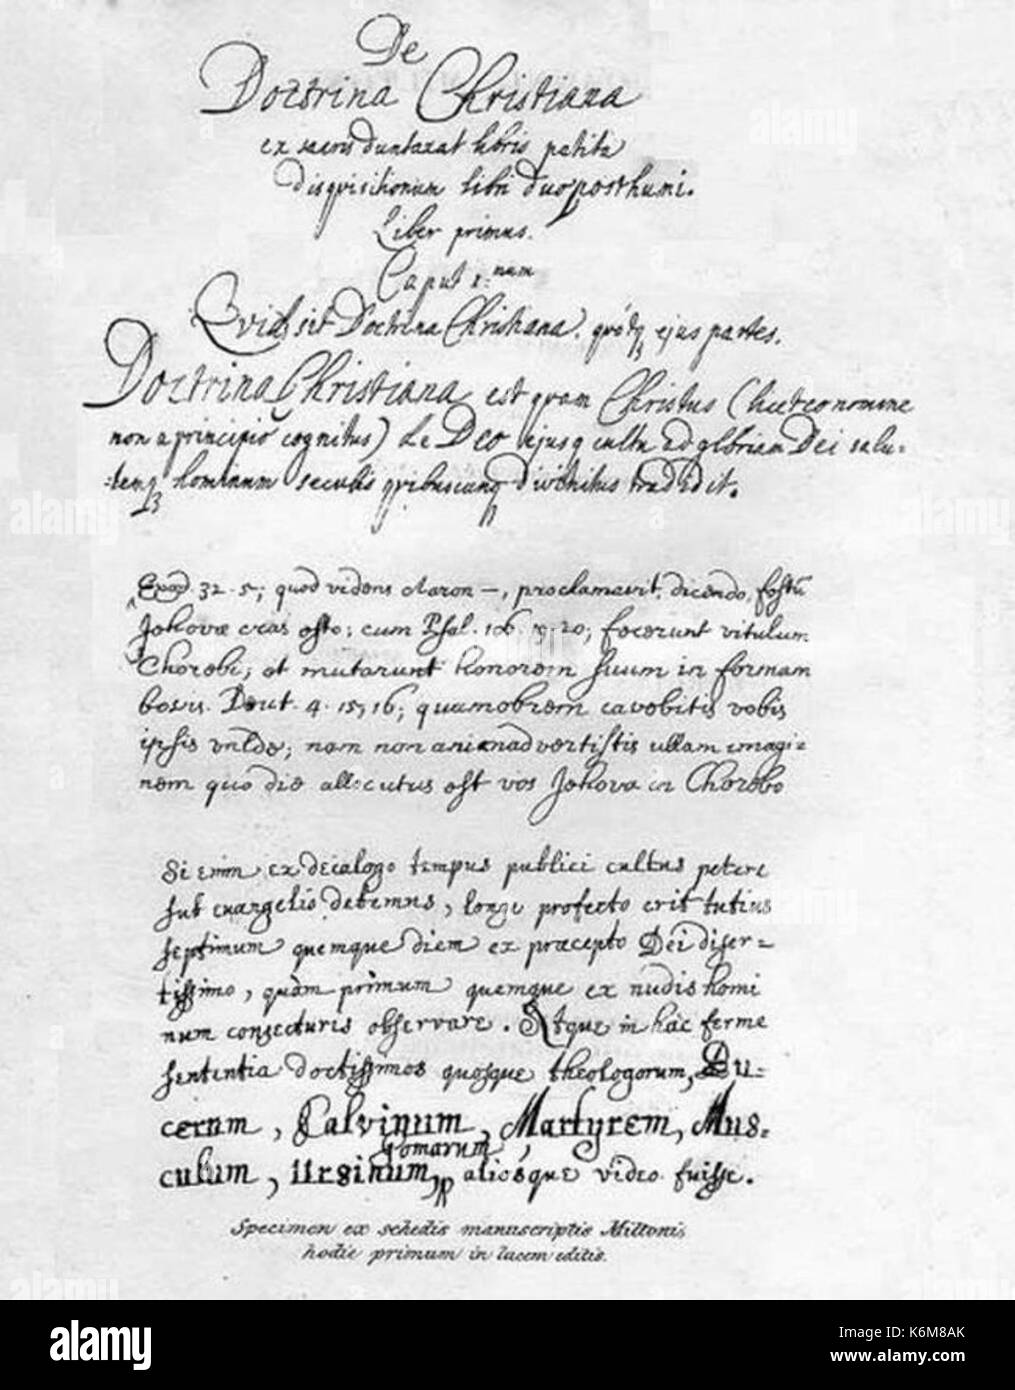 De
Doctrina Christiana
ex sacris duntaxat libris petita
disquisitionum libri duo posthumi.
Liber primus.
Caput 1.num
Quid sit Doctrina Christiana, quotq; ejus partes.
Doctrina Christiana est quam Christus (licet eo nomine
non a principio cognitus) de Deo ejusq cultu ad gloriam Dei salu-
temq hominum seculis quibuscunq divinitus tradidit.
Exod. 32. 5; quod videns Aaron —, proclamavit, dicendo, festũ
Jehovæ cras esto; cum Psal. 106. 19. 20; fecerunt vitulum
Chorebi; et mutarunt honorem suum in formam
bovis. Deut. 4. 15, 16; quamobrem cavebitis vobis
ipsis valde; nam non animadvertistis ullam imagi=
nem quo die allocutus est vos Jehova in Chorebo
Si enim ex decalogo tempus publici cultus petere
sub evangelio debemus, longe profecto erit tutius
septimum quemque diem ex præcepto Dei diser=
tissimo, quàm primum quemque ex nudis homi
num conjecturis observare. Atque in hac ferme
sententia doctissimos quosque theologorum, Bu=
cerum, Calvinum, Martyrem, Mus=
culum, Ursinum, Gomarum, aliosque video fuisse.
Specimen ex schedis manuscriptis Miltonis,
hodie primum in lucem editis.
alamy
Image ID: K6M8AK
www.alamy.com